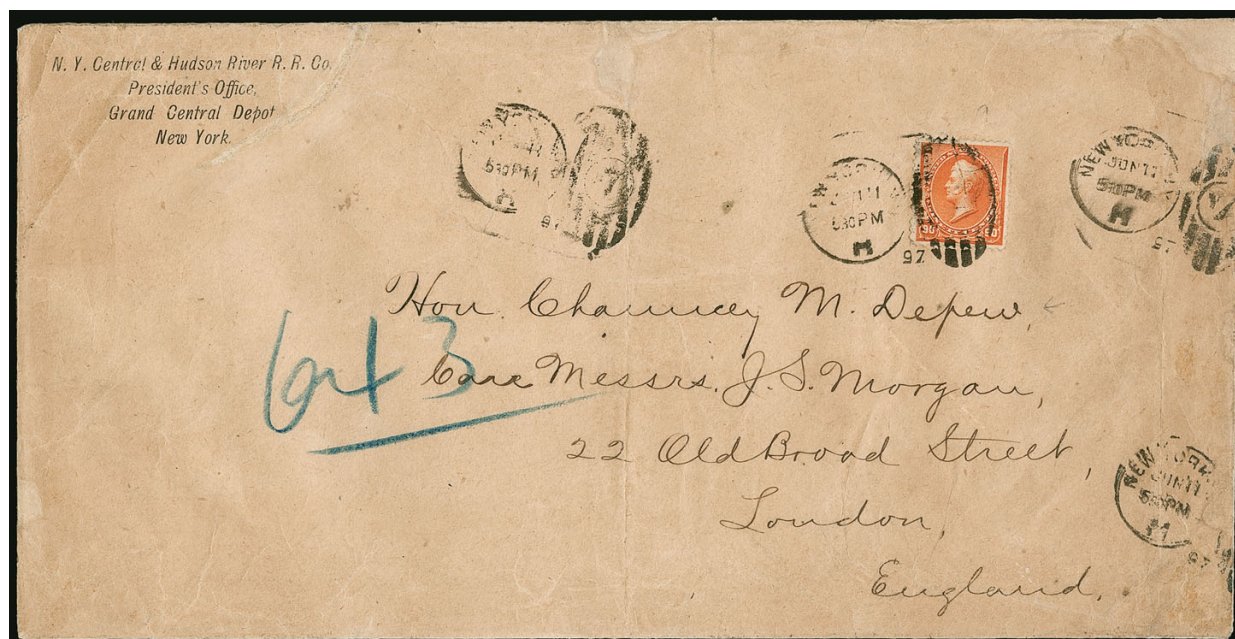 N. Y. Central & Hudson River R. R. Co.
President's Office,
Grand Central Depot
New York.
5 30 PM
97
NEW YORK
JUN 11
5 30 PM
M
97
90
NEW YORK
JUN 11
5 30 PM
M
97
Hon. Chauncey M. Depew,
643
Care Messrs. J. S. Morgan,
22 Old Broad Street,
London,
England.
NEW YORK
JUN 11
5 30 PM
97